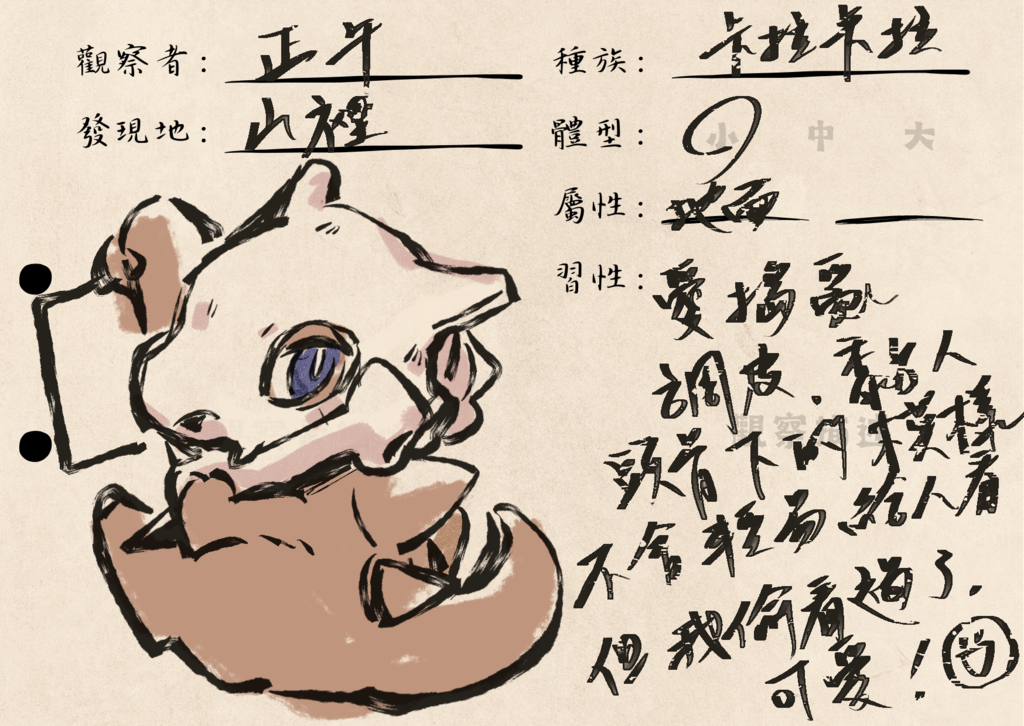 觀察者:正午
種族:卡拉卡拉
發現地:山裡
體型:小 中 大
屬性:地面
習性:愛搗亂
調皮.人
頭骨下的模樣
不會輕易給人看
但我偷看過了.
可愛!